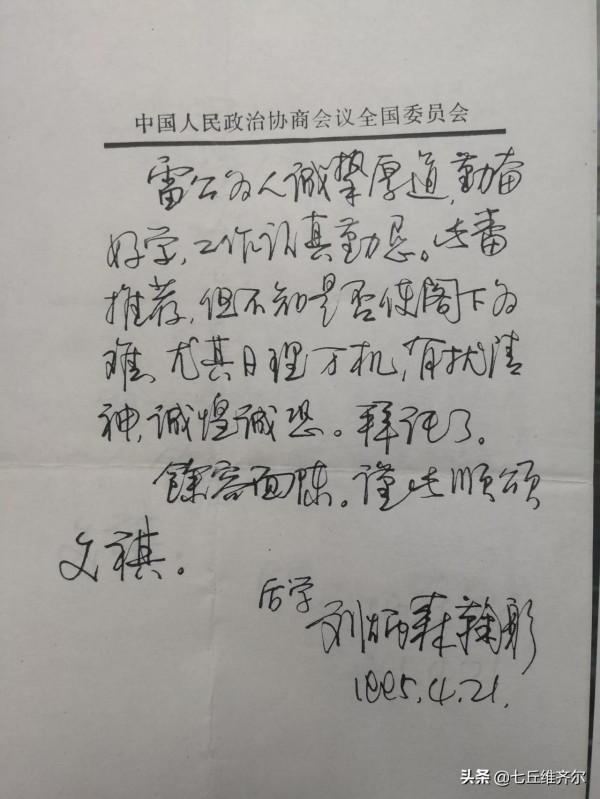 中国人民政治协商会议全国委员会
雷公为人诚挚厚道,勤奋
好学,工作认真勤恳。此番
推荐,但不知是否使阁下为
难、尤其日理万机,有扰清
神,诚惶诚恐。拜托了。
馀容面陈。谨此顺颂
文祺。
后学
刘炳森鞠躬
1995.4.21.
头条 @七丘维齐尔